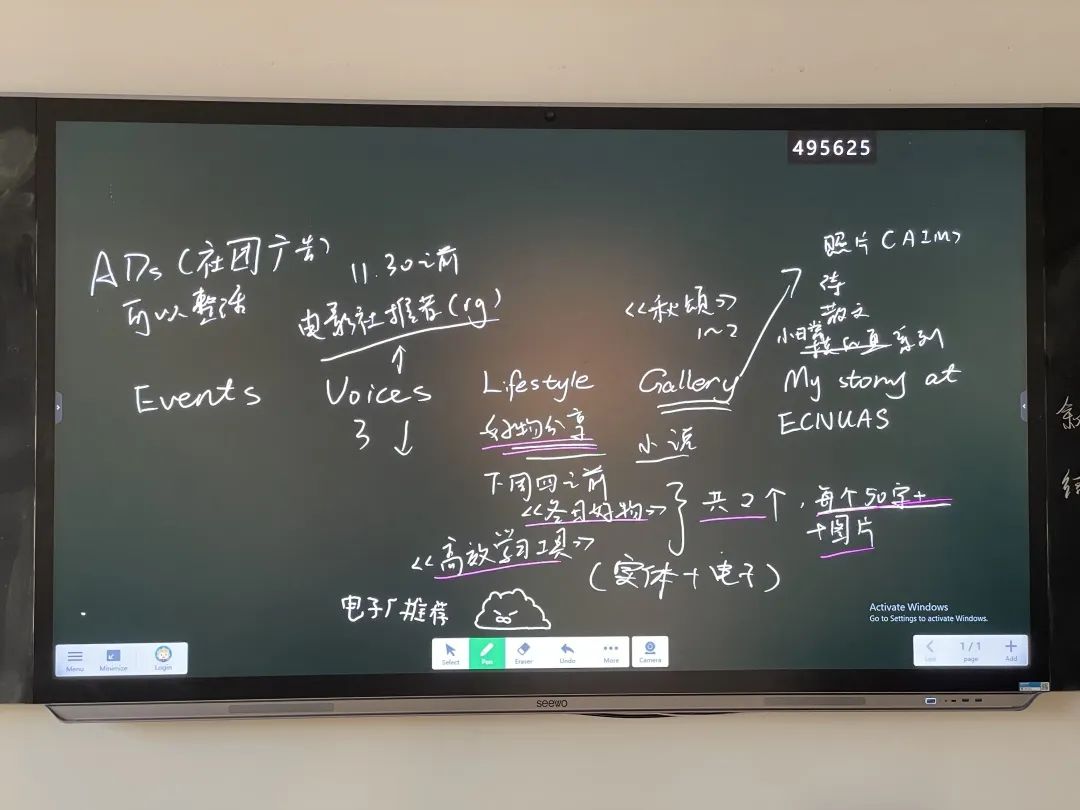 495625
ADs (社团广告)
可以整活
11.30之前
电影社推荐(rg)
《秋颂》
1~2
照片 (AIM)
诗
散文
小日常
系列
Events
Voices
3
Lifestyle
好物分享
下周四之前
《冬日好物》
《高效学习工具》
共2个, 每个50字+
+图片
(实体+电子)
电子厂推荐
Gallery
小说
My story at
ECNUAS
Activate Windows
Go to Settings to activate Windows.
Menu
Minimize
Login
Select
Pen
Eraser
Undo
More
Camera
1/1
page
Add
seewo